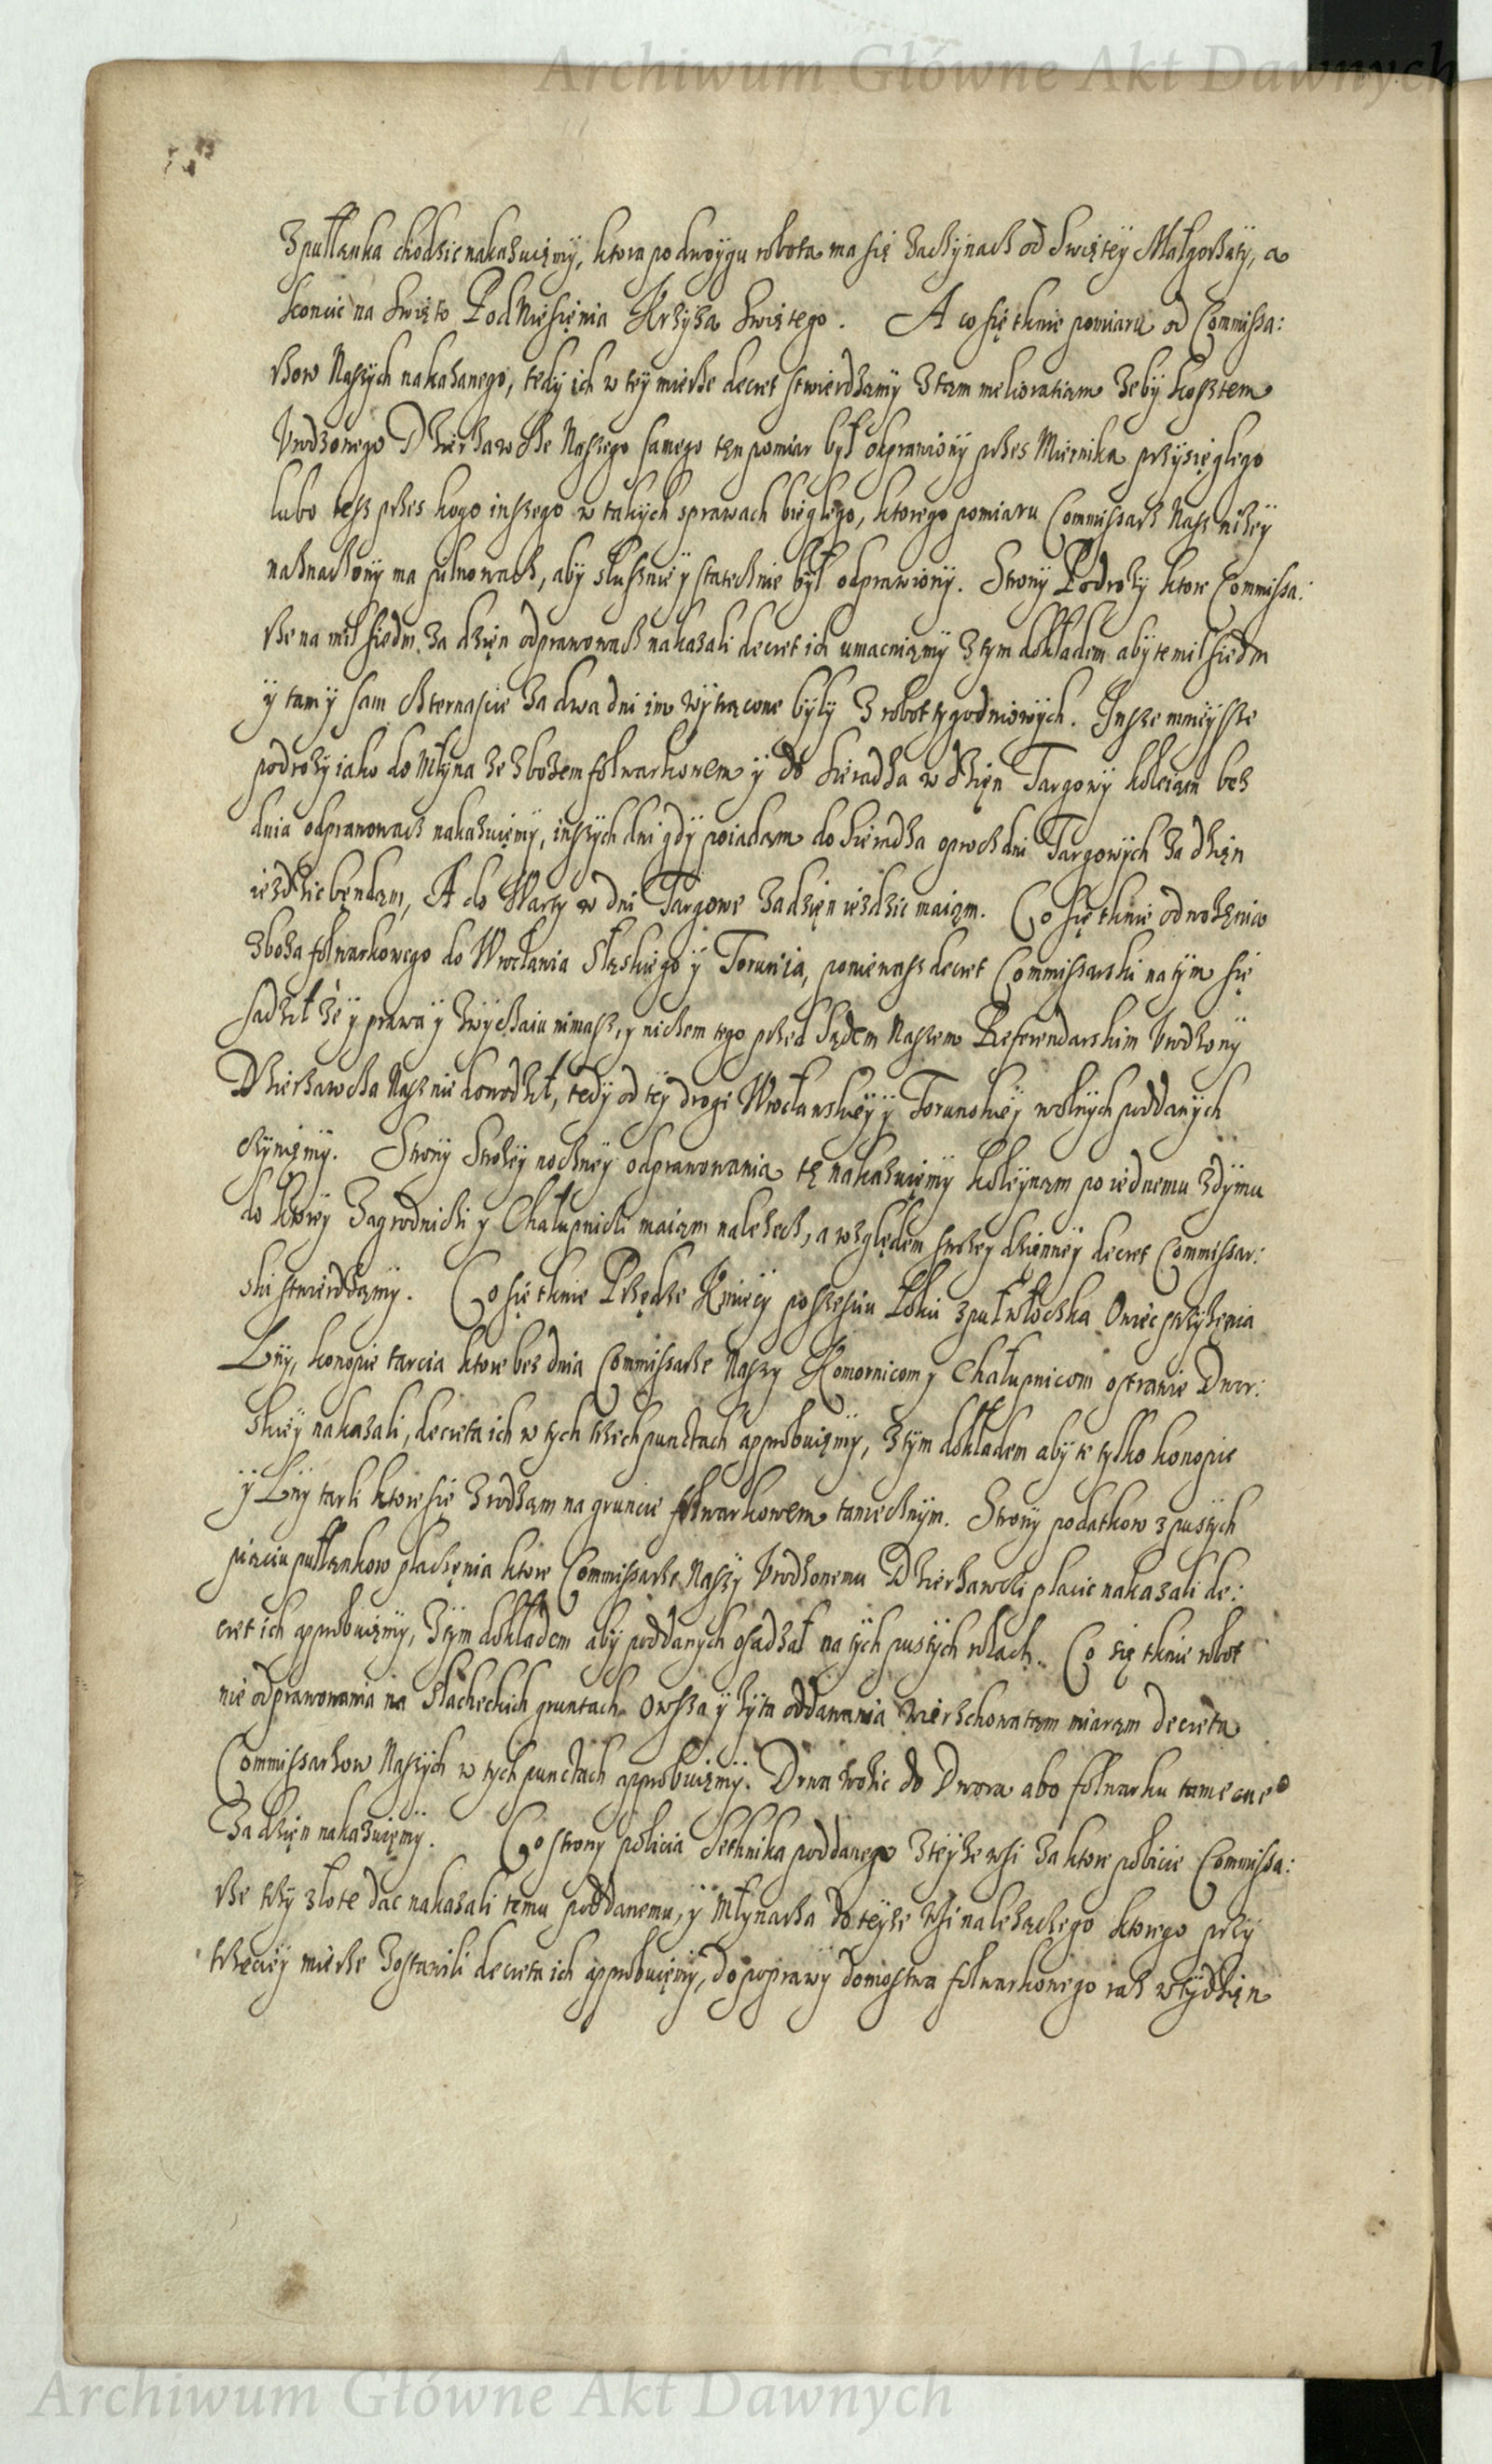 Archiwum Główne Akt Dawnych
Zpułłanka chodzic nakazuięmy, ktora po dwoygu robota ma się zaczynacz od Swiętey Małgorzaty, a
konczic na Swięto Podniesięnia Krzyza Swiętego. A co się tknie pomiaru od Commissa:
rzow Naszych nakazanego, tedy ich w tey mierze decret stwierdzamy z tąm melioratiąm zeby kosztem
Urodzonego Dzierzawcze Naszego samego tęn pomiar był odprawiony przes Miernika przysięglego
lubo tesz przes kogo inszego w takych sprawach bieglego, ktorego pomiaru Commissarz Nasz nizey
naznaczony ma pilnowacz, aby słusznie y statecznie był odprawiony. Strony Podrozy ktore Commissa:
rze na mil siedm za dzięn odprawowacz nakazali decret ich umacniamy z tym dokładem aby te mil siedm
y tam y sam czternascie za dwa dni im wytrącone były z robot tygodniowych. Insze mnieysze
podrozy iako do Młyna ze zbozem folwarkowem y do Sieradza w dzięn Targowy koleiąm bez
dnia odprawowacz nakazuięmy, inszych dni gdy poiadąm do Sieradza oprocz dni Targowych za dzięn
iezdzic będąm, A do Warty w dni Targowe za dzięn iezdzic maiąm. Co się tknie odwozęnia
zboza folwarkowego do Wrocławia Sląskiego y Torunia, poniewasz decret Commissarski na tym się
sadził ze y prawa y zwyczaiu nimasz, y niczem tego przed Sądem Naszem Referendarskim Urodzony
Dzierzawcza Nasz nie dowodził, tedy od tey drogi Wrocławskiey y Torunskiey wolnych poddanych
czyniemy. Strony Strozey nocney odprawowania tę nakazuięmy koleynąm po iednemu z dymu
do ktorey Zagrodnicki y Chałupnicki maiąm nalezecz, a względem strozey dzięnney decret Commissar:
ski stwierdzamy. Co się tknie Przędze Kmiecy po szesciu łokci z puł włoczka Owiec strzyzęnia
Lny, konopie tarcia ktore bez dnia Commissarze Naszy Komornicom y Chałupnicom o strawie Dwor:
skiey nakazali, decreta ich w tych trzech punctach approbuięmy, z tym dokładem aby te tylko konopie
y Lny tarli ktore się zrodząm na gruncie folwarkowem tamecznym. Strony podatkow z pustych
pięciu pułłankow płacęnia ktore Commissarze Naszy Urodzonemu Dzierzawci placic nakazali de:
cret ich approbuięmy, z tym dokładem aby poddanych osadzał na tych pustych rolach. Co się tknie robot
nie odprawowania na Slacheckich gruntach Owsza y zyta oddawania wierzchowatąm miarąm decreta
Commissarzow Naszych w tych punctach approbuięmy. Drwa wozic do Dwora abo folwarku tamecne°
za dzięn nakazuięmy. Co strony pobicia Setknika poddanego z teyze wsi za ktore pobicie Commissa:
rze trzy złote dac nakazali temu poddanemu, y Młynarza do teyze Wsi nalezączego ktorego przy
trzeciey mierze zostawili decreta ich approbuięmy, do poprawy domostwa folwarkowego raz w tydzięn
Archiwum Główne Akt Dawnych